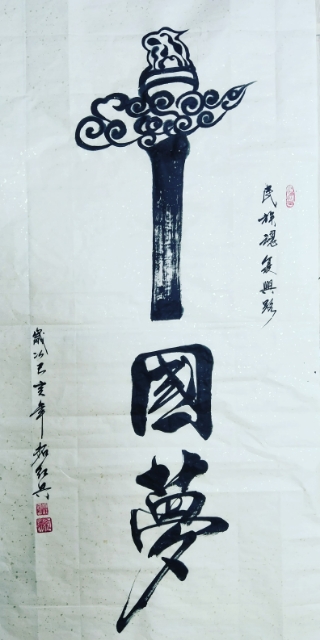 民族魂復興路
中國夢
歲次己亥年